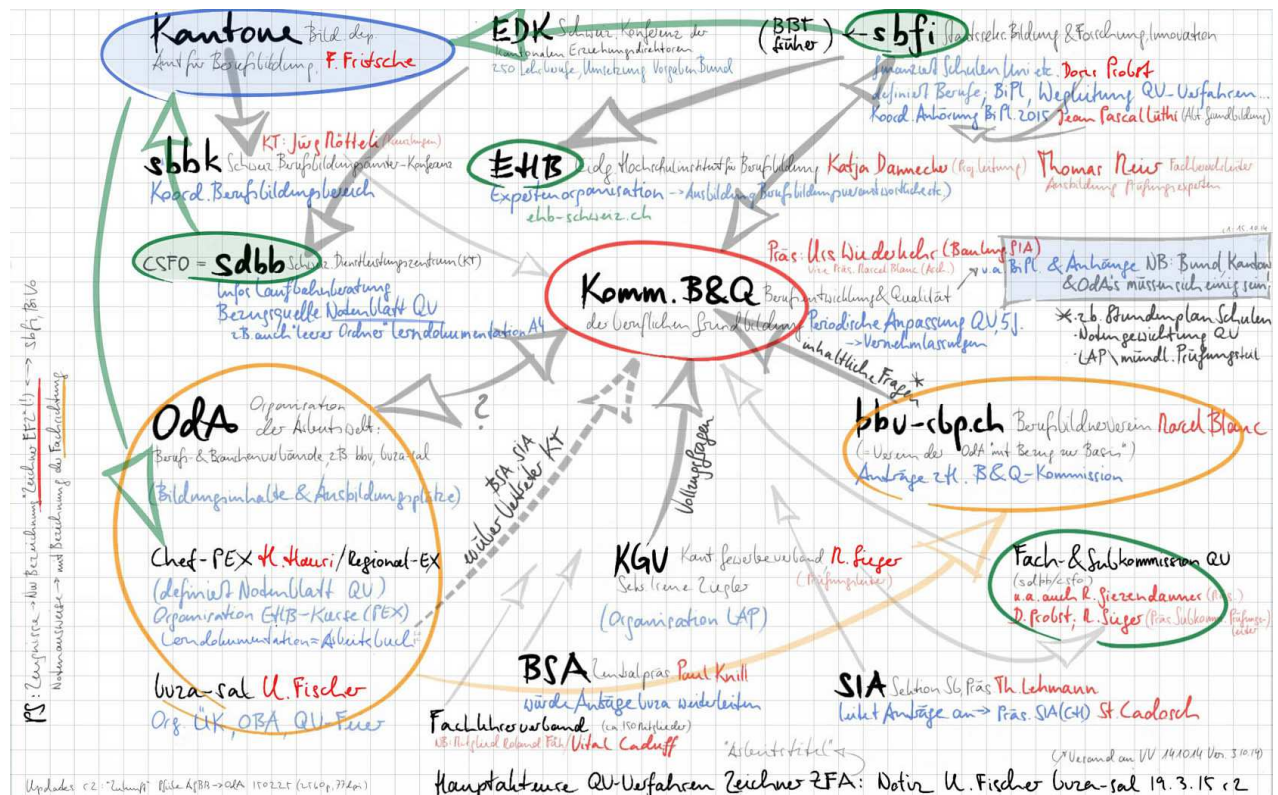 Kantone Bild. dep.
Amt für Berufsbildung, F. Fritsche
EDK Schweiz. Konferenz der
kantonalen Erziehungsdirektoren
250 Lehrberufe, Umsetzung Vorgaben Bund
(BBT
früher)
sbfi Staatssekr. Bildung & Forschung, Innovation
finanziert Schulen Uni etc. Doris Probst
definiert Berufe; BiPl, Wegleitung QV-Verfahren...
Koord. Anhörung BiPl. 2015 Jean Pascal Lüthi (Abt. Grundbildung)
KT: Jürg
sbbk Schweiz. Berufsbildungsämter-Konferenz
Koord. Berufsbildungsbereich
EHB Eidg. Hochschulinstitut für Berufsbildung Katja Dannecker (Prog leitung)
Expertenorganisation → Ausbildung Berufsbildungsverantwortliche etc)
ehb-schweiz.ch
Thomas Meier Fachbereichsleiter
Ausbildung Prüfungsexperten
CSFO = sdbb Schweiz. Dienstleistungszentrum (KT)
Infos Laufbahnberatung
Bezugsquelle Notenblatt QV
z.B. auch "leerer Ordner" Lerndokumentation A4
Komm. B&Q Berufsentwicklung & Qualität
der beruflichen Grundbildung
Präs: Urs Wiederkehr (Bauing SIA)
Vize Präs. Marcel Blanc (Arch.)
Periodische Anpassung QV, 5J.
→ Vernehmlassungen
u.a. BiPl & Anhänge NB: Bund Kantone
& OdA's müssen sich einig sein
* z.b. Stundenplan Schulen
· Notengewichtung QV
· LAP \ mündl. Prüfungsteil
inhaltliche Fragen *
?
OdA Organisation
der Arbeitswelt:
Berufs- & Branchenverbände, zB bbv, bvza-sal
(Bildungsinhalte & Ausbildungsplätze)
Chef-PEX H. Hauri / Regional-EX
(definiert Notenblatt QV)
Organisation EHB-Kurse (PEX)
Lerndokumentation = Arbeitsbuch
bvza-sal U. Fischer
Org. ÜK, OBA, QV-Feier
BSA, SIA
über Vertreter KT
Vollzugsfragen
bbv-cbp.ch Berufsbildnerverein Marcel Blanc
(= Verein der "OdA" mit Bezug zur Basis")
Anträge z.H. B&Q-Kommission
KGV Kant. Gewerbeverband R. Sieger
(Prüfungsleiter)
Sekr. Irene Ziegler
(Organisation LAP)
Fach- & Subkommission QV
(sdbb/csfo)
u.a. auch R. Giezendanner (Präs.)
D. Probst; R. Sieger (Präs Subkomm. Prüfungsleiter
BSA Zentralpräs Paul Knill
würde Anträge bvza weiterleiten
SIA Sektion SG, Präs Th. Lehmann
leitet Anträge an → Präs. SIA (CH) St. Cadosch
Fachlehrerverband (ca 150 Mitglieder)
NB: Mitglied Roland Fäh / Vital Caduff
"Arbeitstitel"
(Versand an VV 141014 Vers. 3.10.14)
Hauptakteure QV-Verfahren Zeichner ZFA: Notiz U. Fischer bvza-sal 19.3.15 r2
PS: Zeugnisse → Nur Bezeichnung "Zeichner EFZ" (!) <--> sbfi, BiVo
Notenausweise → mit Bezeichnung der Fachrichtung